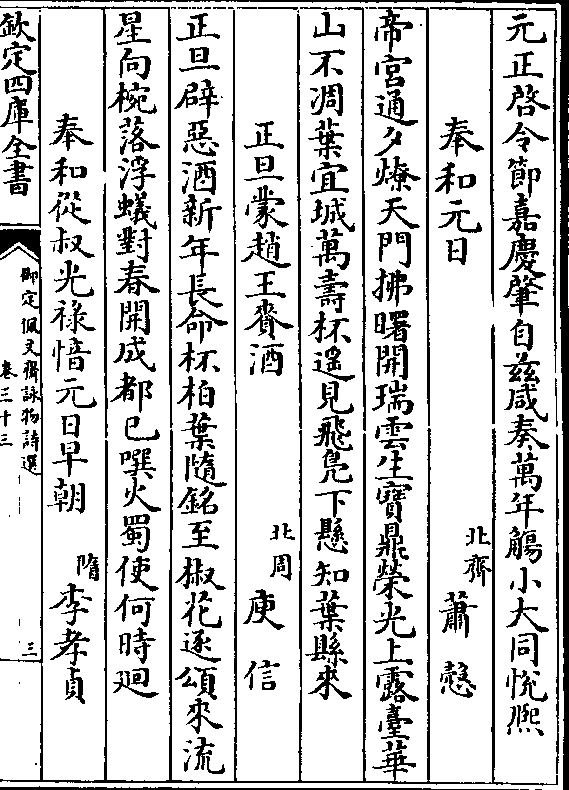 元正啓令節嘉慶肇自茲咸奏萬年觴小大同悅熙
奉和元日　北齊　蕭慤
帝宮通夕燎天門拂曙開瑞雲生寶鼎榮光上露臺華
山不凋葉宜城萬壽杯遥見飛鳬下懸知葉縣來
正旦蒙趙王賚酒　北周　庾信
正旦辟惡酒新年長命杯柏葉隨銘至椒花逐頌來流
星向椀落浮蟻對春開成都已噀火蜀使何時廻
奉和從叔光祿愔元日早朝　隋　李孝貞
欽定四庫全書
御定佩文齋詠物詩選
卷三十三
三